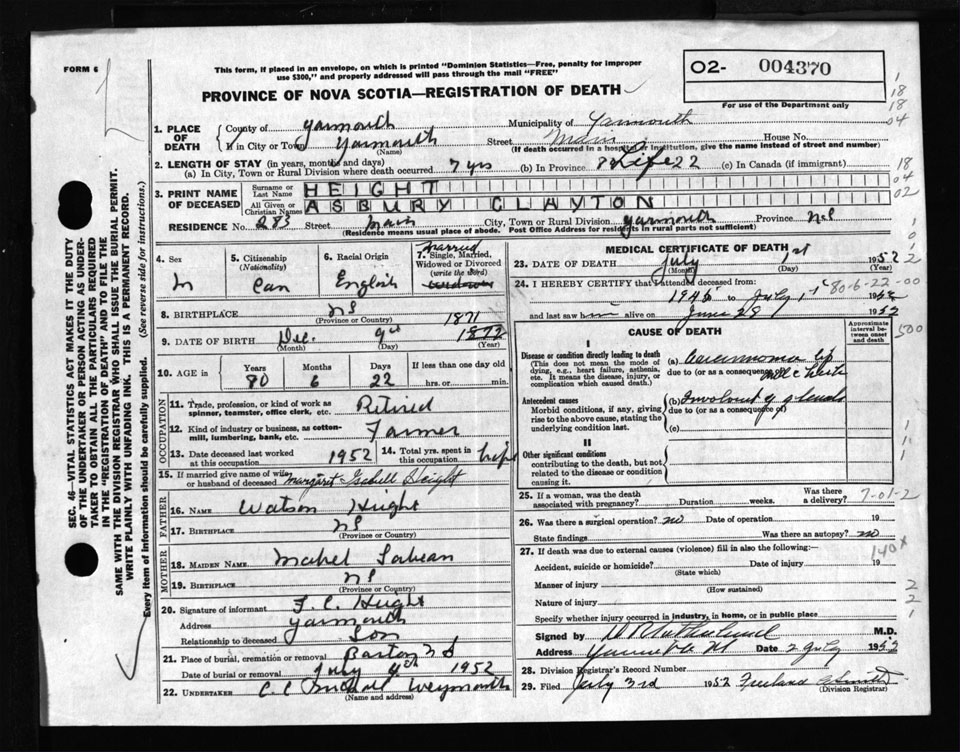 FORM 6
This form, if placed in an envelope, on which is printed "Dominion Statistics—Free, penalty for improper
use $300," and properly addressed will pass through the mail "FREE"
PROVINCE OF NOVA SCOTIA—REGISTRATION OF DEATH
O2- 004370
For use of the Department only
1. PLACE OF DEATH
County of Yarmouth Municipality of Yarmouth
If in City or Town Yarmouth Street Main House No.
(Name) (If death occurred in a hospital or institution, give the name instead of street and number)
2. LENGTH OF STAY (in years, months and days)
(a) In City, Town or Rural Division where death occurred 7 yrs (b) In Province Life (c) In Canada (if immigrant)
3. PRINT NAME OF DECEASED
Surname or Last Name HEIGHT
All Given or Christian Names ASBURY CLAYTON
RESIDENCE No. 283 Street Main City, Town or Rural Division Yarmouth Province NS
(Residence means usual place of abode. Post Office Address for residents in rural parts not sufficient)
4. Sex M
5. Citizenship (Nationality) Can
6. Racial Origin English
7. Single, Married, Widowed or Divorced (write the word) Married
8. BIRTHPLACE NS
(Province or Country)
9. DATE OF BIRTH Dec. 9th 1871 1872
(Month) (Day) (Year)
10. AGE in Years 80 Months 6 Days 22 If less than one day hrs. or min.
OCCUPATION
11. Trade, profession, or kind of work as spinner, teamster, office clerk, etc. Retired
12. Kind of industry or business, as cotton-mill, lumbering, bank, etc. Farmer
13. Date deceased last worked at this occupation 1952
14. Total yrs. spent in this occupation
15. If married give name of wife or husband of deceased Margaret Isabell Height
FATHER
16. NAME Watson Height
17. BIRTHPLACE NS
(Province or Country)
MOTHER
18. MAIDEN NAME Mabel
19. BIRTHPLACE NS
(Province or Country)
20. Signature of informant F. C. Height
Address Yarmouth
Relationship to deceased Son
21. Place of burial, cremation or removal Barton NS
Date of burial or removal July 4th 1952
22. UNDERTAKER C C Weymouth
(Name and address)
MEDICAL CERTIFICATE OF DEATH
23. DATE OF DEATH July 1st 1952
(Month) (Day) (Year)
24. I HEREBY CERTIFY that I attended deceased from:
1946 to July 1 1952
and last saw him alive on June 28 1952
80-6-22-00
CAUSE OF DEATH
Approximate interval between onset and death
I
Disease or condition directly leading to death
(This does not mean the mode of dying, e.g., heart failure, asthenia, etc. It means the disease, injury, or complication which caused death.)
(a) Carcinoma lip
due to (or as a consequence of)
Antecedent causes
Morbid conditions, if any, giving rise to the above cause, stating the underlying condition last.
(b) Involvement of glands
due to (or as a consequence of)
(c)
II
Other significant conditions
contributing to the death, but not related to the disease or condition causing it.
25. If a woman, was the death associated with pregnancy? Duration weeks. Was there a delivery?
7-01-2
26. Was there a surgical operation? no Date of operation 19
State findings Was there an autopsy? no
27. If death was due to external causes (violence) fill in also the following:—
140x
Accident, suicide or homicide? Date of injury 19
(State which)
Manner of injury
(How sustained)
Nature of injury
Specify whether injury occurred in industry, in home, or in public place
Signed by M.D.
Address Yarmouth Date 2 July 1952
28. Division Registrar's Record Number
29. Filed July 3rd 1952 Freeland Smith
(Division Registrar)
SEC. 46—VITAL STATISTICS ACT MAKES IT THE DUTY
OF THE UNDERTAKER OR PERSON ACTING AS UNDER-
TAKER TO OBTAIN ALL THE PARTICULARS REQUIRED
IN THE "REGISTRATION OF DEATH" AND TO FILE THE
SAME WITH THE DIVISION REGISTRAR WHO SHALL ISSUE THE BURIAL PERMIT.
WRITE PLAINLY WITH UNFADING INK. THIS IS A PERMANENT RECORD.
Every item of information should be carefully supplied. (See reverse side for instructions.)